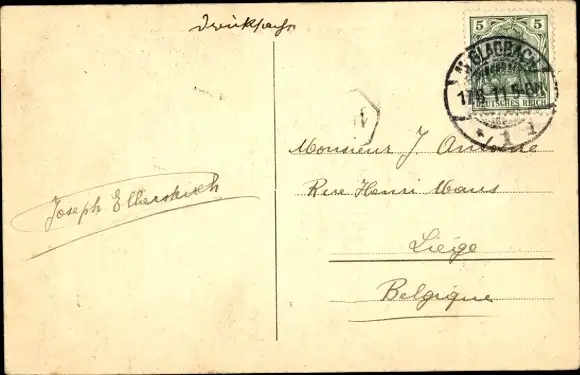 Drucksache
5 5
DEUTSCHES REICH
M. GLADBACH
17.8.11.5-6N.
* 1 d *
Monsieur J. Antoine
Rue Henri Maus
Liége
Belgique
Joseph Elberskirch